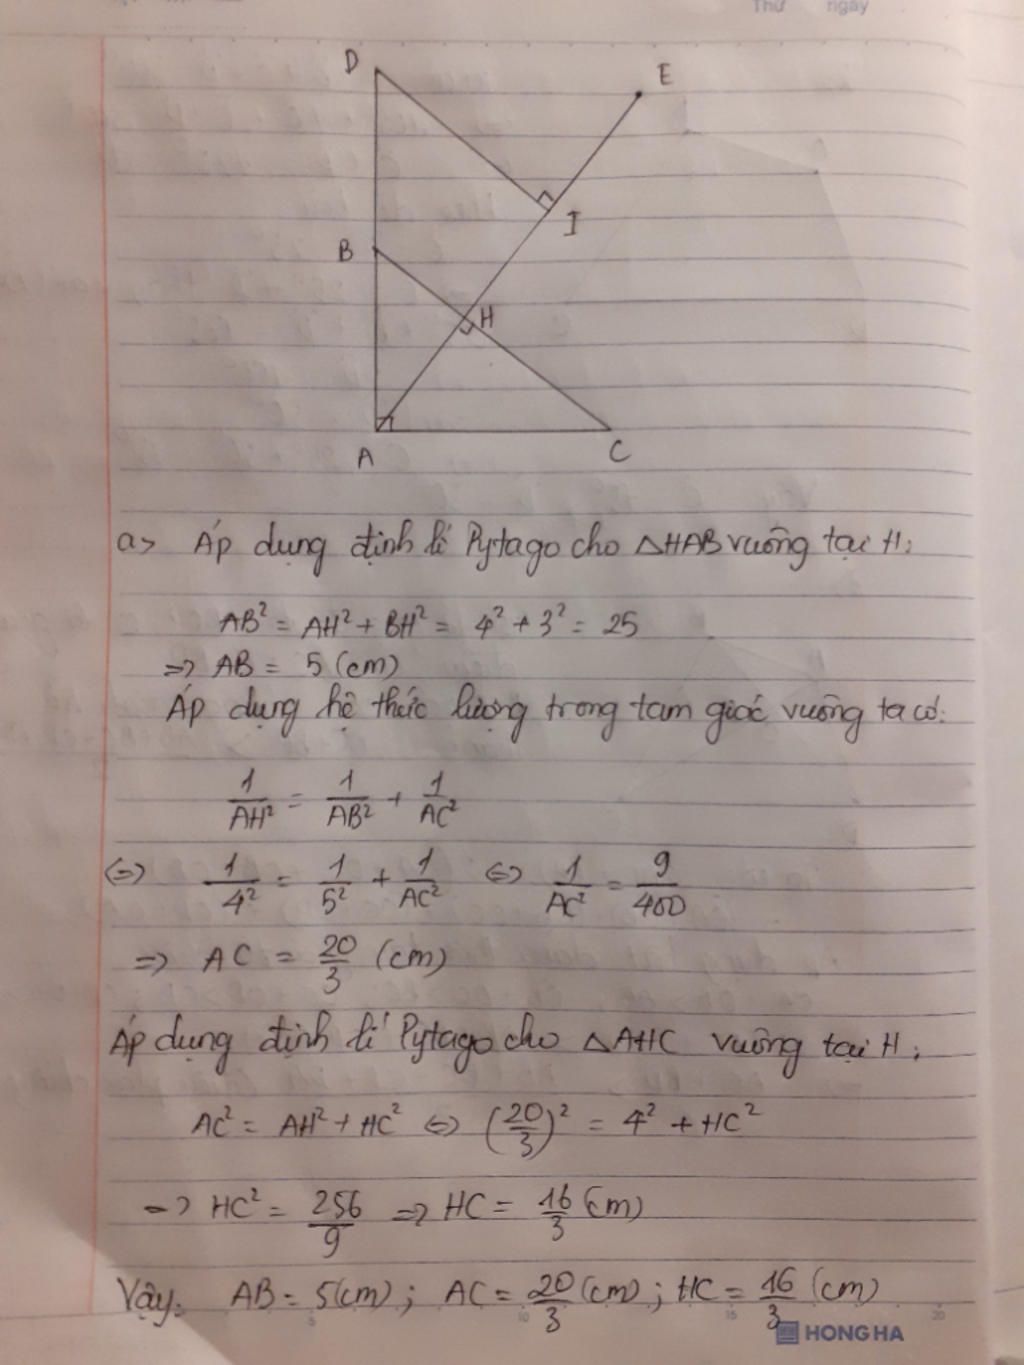 Thứ ngày
D
E
I
B
H
A
C
a> Áp dụng định lí Pytago cho △HAB vuông tại H:
AB² = AH² + BH² = 4² + 3² = 25
=> AB = 5 (cm)
Áp dụng hệ thức lượng trong tam giác vuông ta có:
1/AH² = 1/AB² + 1/AC²
<=> 1/4² = 1/5² + 1/AC² <=> 1/AC² = 9/400
=> AC = 20/3 (cm)
Áp dụng định lí Pytago cho △AHC vuông tại H:
AC² = AH² + HC² <=> (20/3)² = 4² + HC²
=> HC² = 256/9 => HC = 16/3 (cm)
Vậy: AB = 5(cm); AC = 20/3 (cm); HC = 16/3 (cm)
5 10 15 20
HONG HA